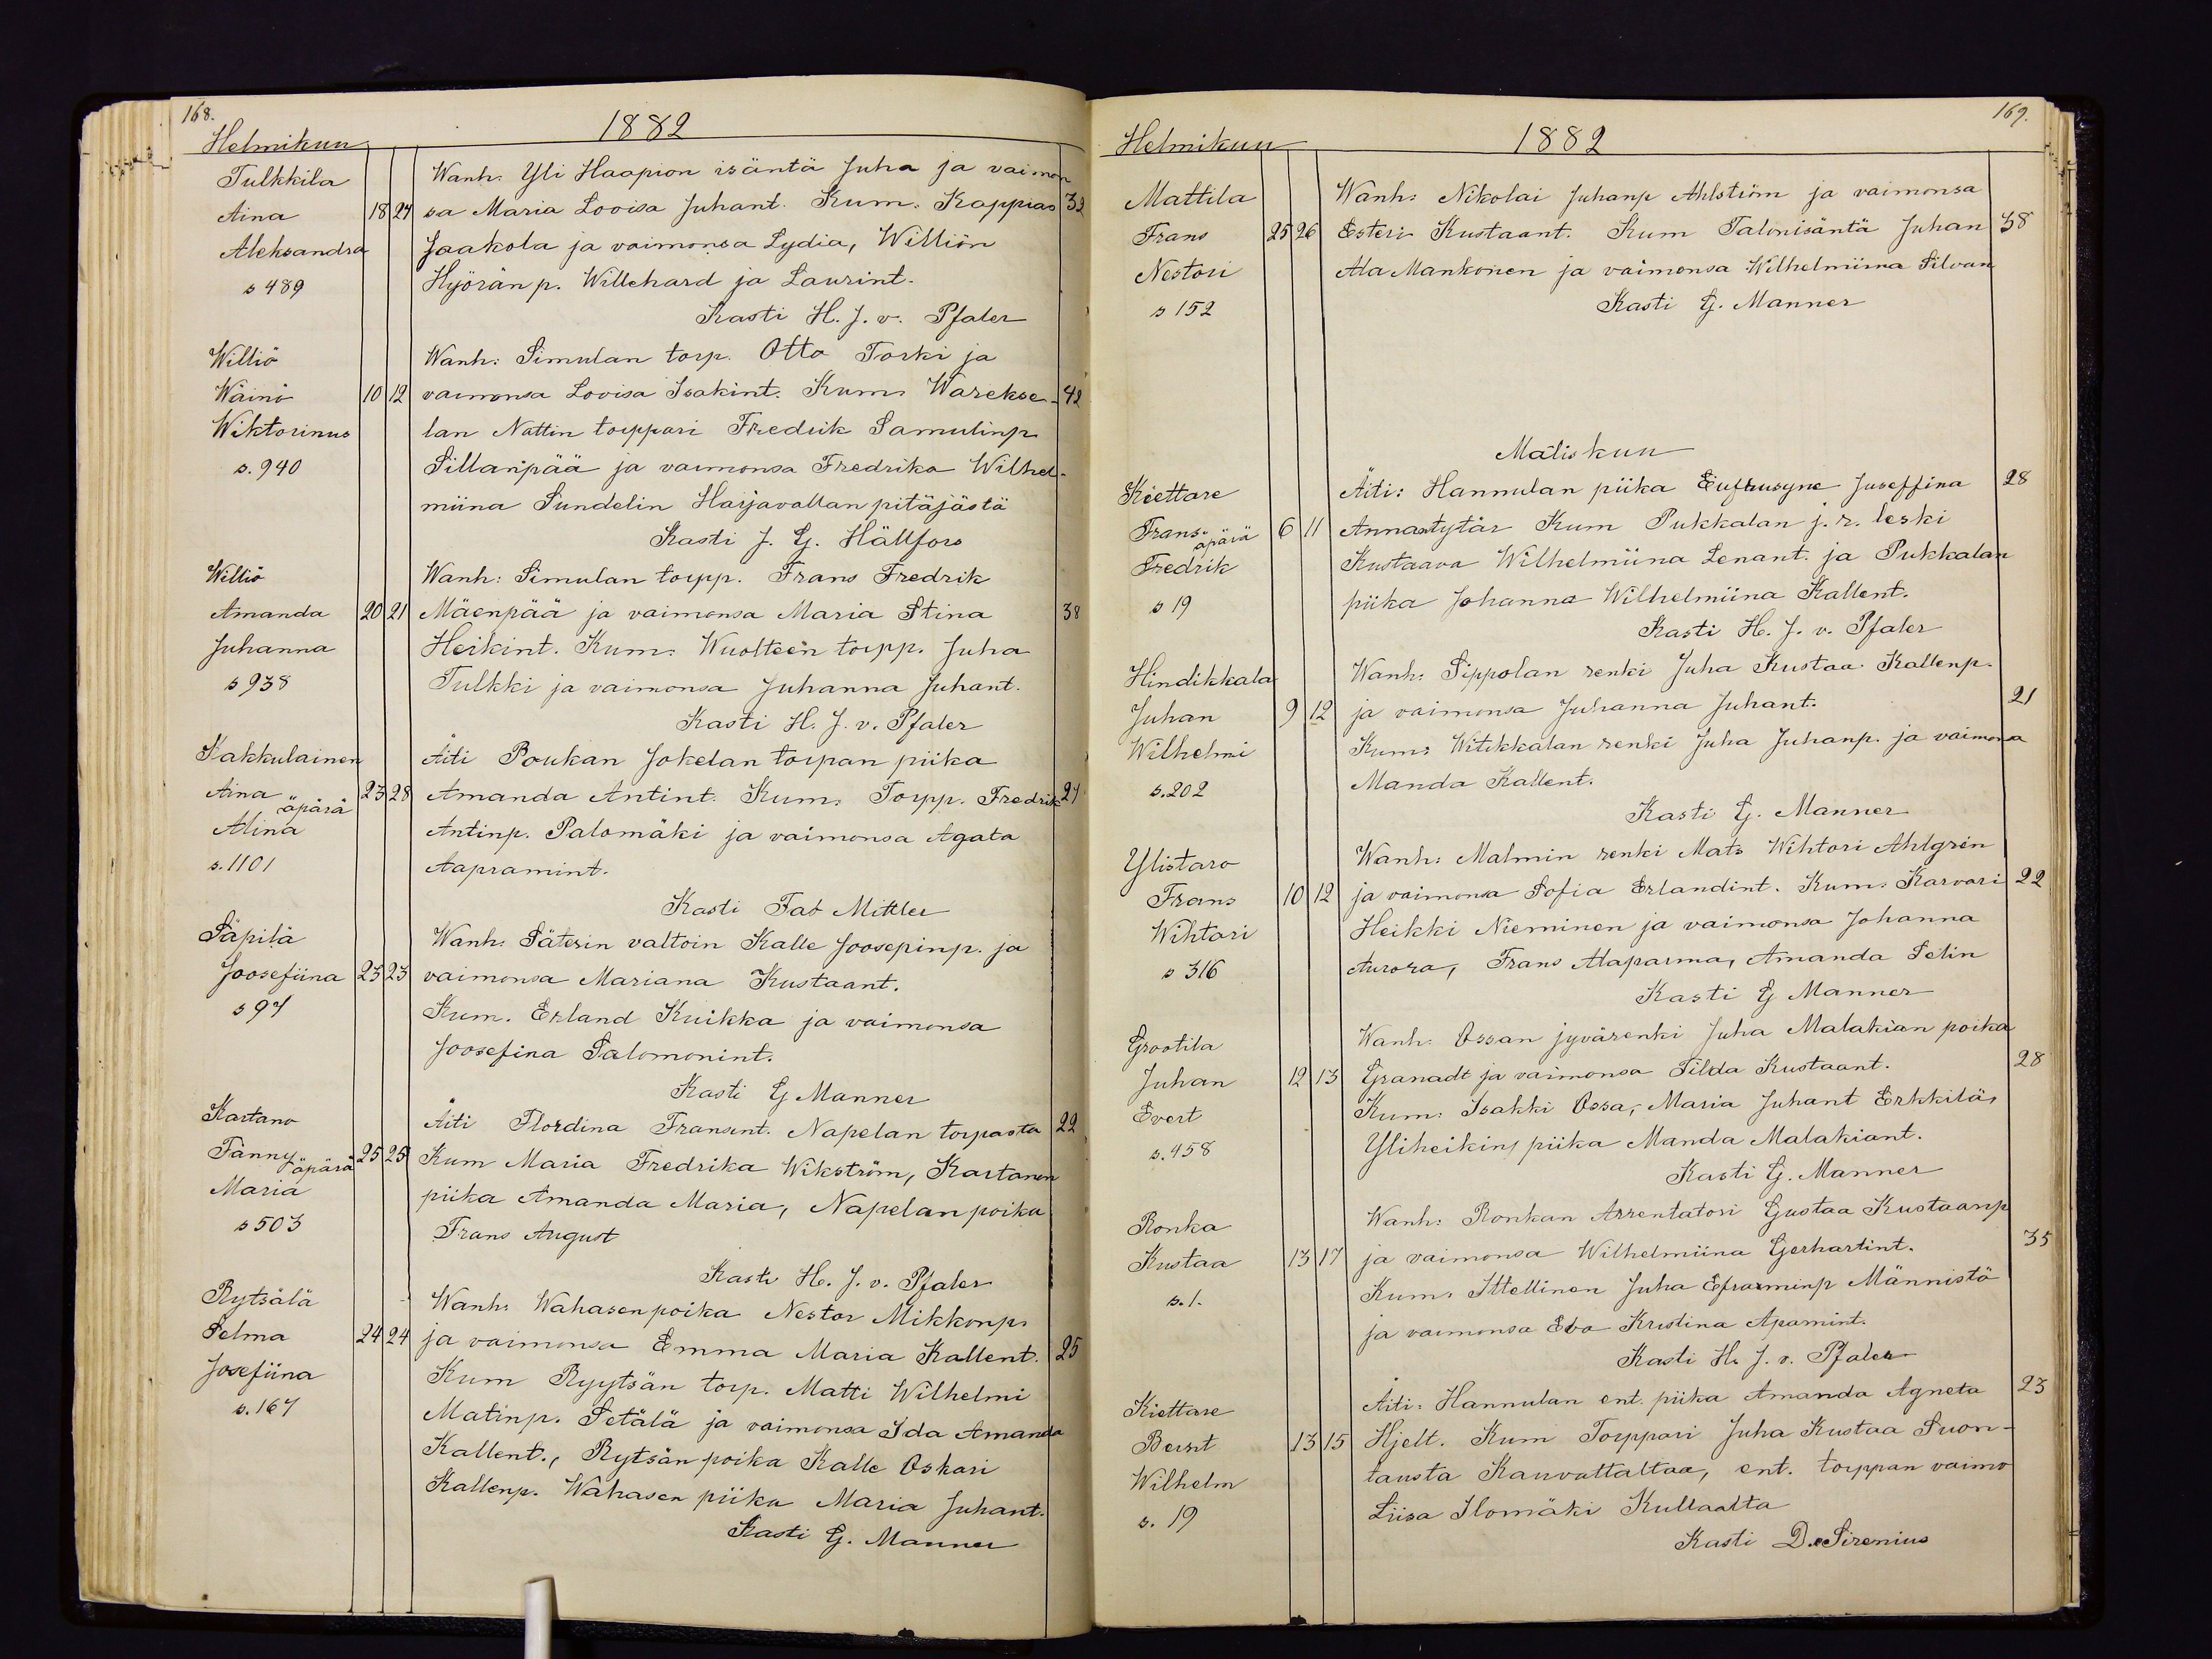 168.
Helmikuu 1882
Tulkkila Wanh. Yli Haapion isäntä Juha ja vaimon
Aina 18 24 sa Maria Lovisa Juhant. Kum. Kappias 32
Aleksandra Jaakola ja vaimonsa Lydia, Williön
s 489 Hyörän p. Willehard ja Laurint.
Kasti H. J. v. Pfaler
Williö Wanh: Simulan torp. Otto Torki ja
Wäinö 10 12 vaimonsa Lovisa Isakint. Kum: Warekse- 42
Wiktorinus lan Nattin torppari Fredrik Samulinp
s. 940 Sillanpää ja vaimonsa Fredrika Wilhel-
miina Sundelin Harjavallan pitäjästä
Kasti J. G. Hällfors
Williö Wanh: Simulan torpp. Frans Fredrik
Amanda 20 21 Mäenpää ja vaimonsa Maria Stina 38
Juhanna Heikint. Kum: Wuolteen torpp. Juha
s 938 Tulkki ja vaimonsa Juhanna Juhant.
Kasti H. J. v. Pfaler
Kakkulainen Äiti Poukan Jokelan torpan piika
Aina äpärä 23 28 Amanda Antint. Kum: Torpp. Fredrik 21
Alina Antinp. Palomäki ja vaimonsa Agata
s. 1101 Aapramint.
Kasti Fab Mittler
Säpilä Wanh: Säterin valtoin Kalle Joosepinp. ja
Joosefiina 23 23 vaimonsa Mariana Kustaant.
s 97 Kum. Erland Kuikka ja vaimonsa
Joosefina Salomonint.
Kasti G Manner
Kartano Äiti Flordina Fransint. Napelan torpasta 22
Fanny äpärä 25 25 Kum Maria Fredrika Wikström, Kartanon
Maria piika Amanda Maria, Napelan poika
s 503 Frans August
Kasti H. J. v. Pfaler
Rytsälä Wanh: Wahasen poika Nestor Mikkonp.
Selma 24 24 ja vaimonsa Emma Maria Kallent. 25
Josefiina Kum Ryytsän torp. Matti Wilhelmi
s. 167 Matinp. Setälä ja vaimonsa Ida Amanda
Kallent., Rytsän poika Kalle Oskari
Kallenp. Wahasen piika Maria Juhant.
Kasti G. Manner
169.
Helmikuu 1882
Mattila Wanh: Nikolai Juhanp Ahlström ja vaimonsa
Frans 25 26 Esteri Kustaant. Kum Talonisäntä Juhan 38
Nestori Ala Mankonen ja vaimonsa Wilhelmiina Silvan
s 152 Kasti G. Manner
Maliskuu
Kiettare Äiti: Hannulan piika Eufrusyne Juseffina 28
Frans äpärä 6 11 Annastytär Kum Pukkalan j. r. leski
Fredrik Kustaava Wilhelmiina Lenant. ja Pukkalan
s 19 piika Johanna Wilhelmiina Kallent.
Kasti H. J. v. Pfaler
Hindikkala Wanh: Sippolan renki Juha Kustaa Kallenp.
Juhan 9 12 ja vaimonsa Juhanna Juhant. 21
Wilhelmi Kum: Witikkalan renki Juha Juhanp. ja vaimonsa
s. 202 Manda Kallent.
Kasti G. Manner
Ylistaro Wanh: Malmin renki Mats Wihtori Ahlgrén
Frans 10 12 ja vaimonsa Sofia Erlandint. Kum: Karvari 22
Wihtori Heikki Nieminen ja vaimonsa Johanna
s 316 Aurora, Frans Alaparma, Amanda Selin
Kasti G Manner
Grootila Wanh: Ossan jyvärenki Juha Malakian poika
Juhan 12 13 Granadt ja vaimonsa Tilda Kustaant. 28
Evert Kum: Isakki Ossa, Maria Juhant Erkkilä,
s. 458 Yliheikin piika Manda Malakiant.
Kasti G. Manner
Ronka Wanh: Ronkan Arrentatori Gustaa Kustaanp
Kustaa 13 17 ja vaimonsa Wilhelmiina Gerhartint. 35
s. 1. Kum: Ittellinen Juha Efraiminp Männistö
ja vaimonsa Eva Kristina Apamint.
Kasti H. J. v. Pfaler
Kiettare Äiti: Hannulan ent. piika Amanda Agneta 23
Bernt 13 15 Hjelt. Kum Torppari Juha Kustaa Suon-
Wilhelm tausta Kauvattaltaa, ent. torppan vaimo
s. 19 Liisa Ilomäki Kullaalta
Kasti D. Sirenius